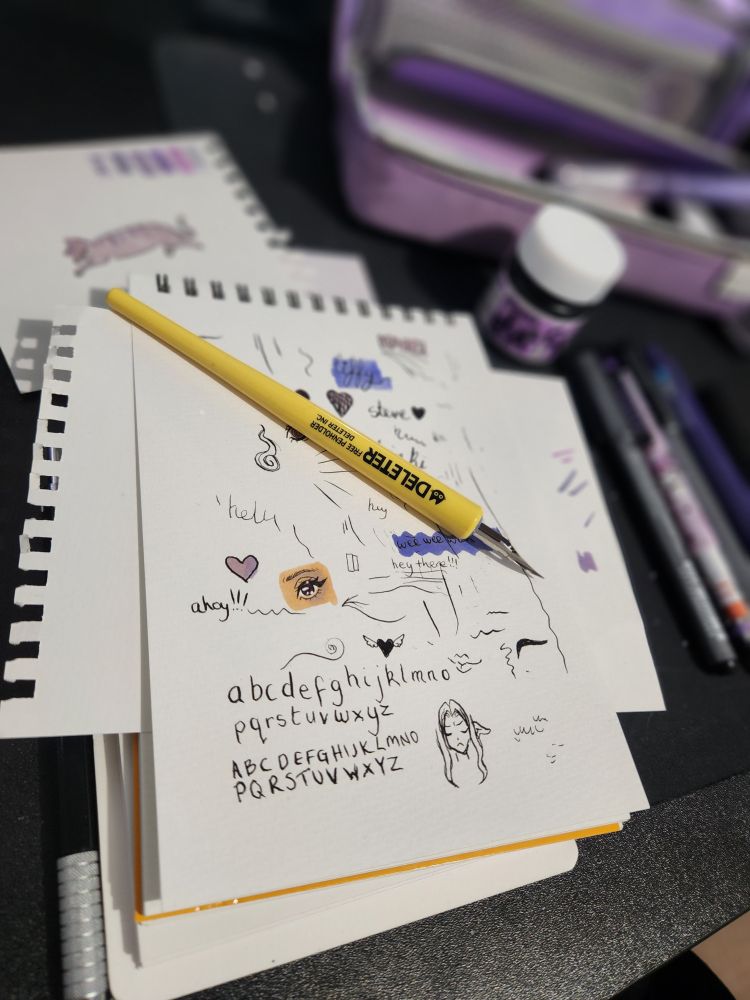 steve
DELETER
FREE PENHOLDER
DELETER INC.
hey
wee wee
hey there!!!
ahoy!!!
abcdefghijklmno
pqrstuvwxyz
ABCDEFGHIJKLMNO
PQRSTUVWXYZ